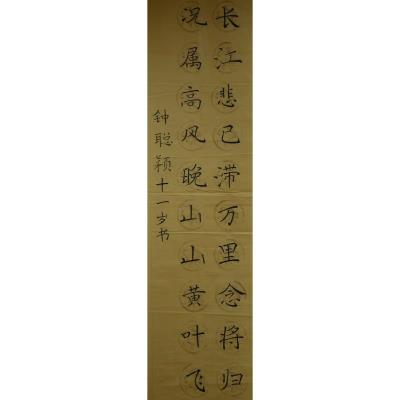 长江悲已滞万里念将归
况属高风晚山山黄叶飞
钟聪颖十一岁书